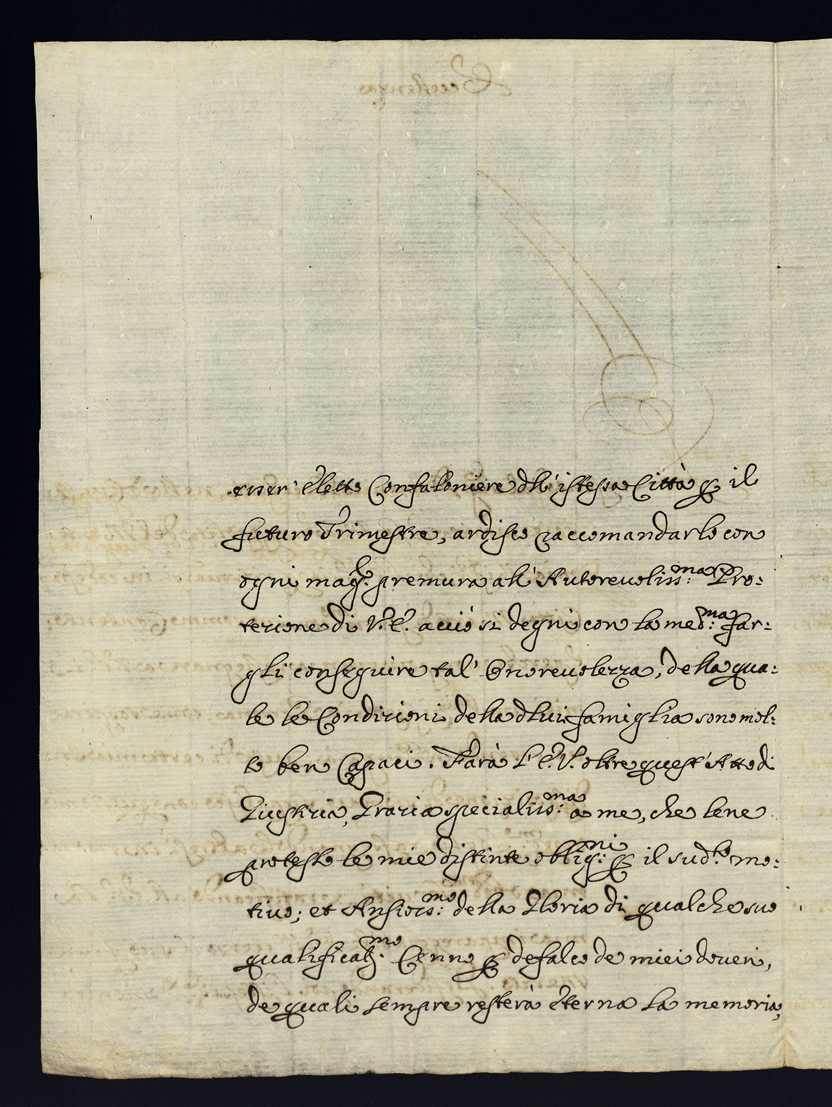 esser' eletto Confaloniere dell'istessa Città per il
futuro Trimestre, ardisco raccomandarlo con
ogni magr. premura all'Autorevoliss:ma Pro:
tezione di V.E. acciò si degni con la med:ma far:
gli conseguire tal' Onorevolezza, della qua:
le le Condizioni della di lui famiglia sono mol:
to ben Capaci. Farà l'E.V. oltre quest'Atto di
Giustizia, Grazia specialiss:ma a me, che le ne
protesto le mie distinte oblig:ni per il sud.to mo:
tivo; et Ansios:mo della Gloria di qualche suo
qualificat:mo Cenno per defalco de miei doveri,
de quali sempre resterà eterna la memoria,